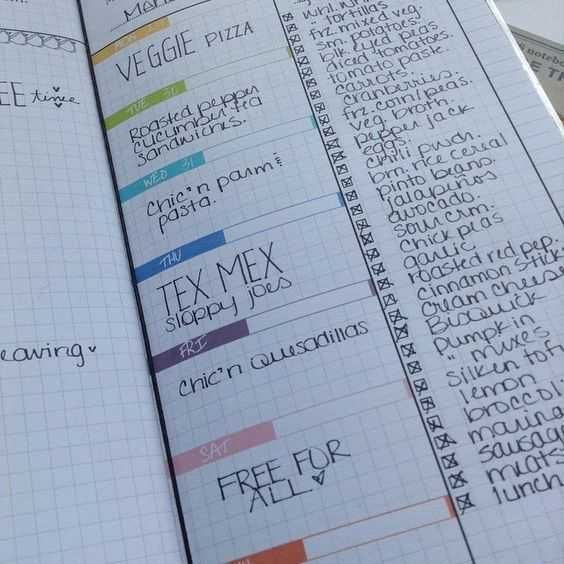 EE time
eaving
MON
VEGGIE PIZZA
TUE 30
Roasted pepper
cucumber tea
sandwiches.
WED 31
Chic'n parm &
pasta.
THU
TEX MEX
sloppy joes
FRI
chic'n Quesadillas
SAT
FREE FOR
ALL
tortillas
frz. mixed veg.
sm. potatoes.
blk eyed peas
diced tomatoes.
tomato paste.
carrots.
cranberries.
frz. corn/peas.
veg. broth.
pepper jack
eggs.
chili pwdr.
brn. rice cereal
pinto beans.
jalapeños
avocado.
sour crm.
chick peas
garlic
roasted red pep.
cinnamon stick
cream cheese
Bisquick
pumpkin
" mixes
silken tofu
lemon
broccoli
marina
sausage
meats
lunch
noteb
E T